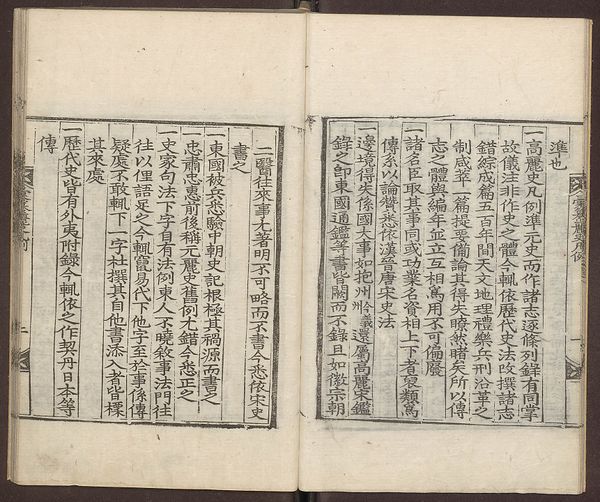 準也
一高麗史凡例準元史而作諸志逐條列錄有同掌
故儀注非作史之體今輒依歷代史法改撰諸志
錯綜成篇五百年間天文地理禮樂兵刑沿革之
制咸萃一篇提要備論其得失瞭然睹矣所以傳
志之體與編年並立互相寓用不可偏廢
一諸名臣取其事同或功業名資相上下者裒類寫
傳系以論贊悉依漢晉唐宋史法
一邊境得失係國大事如抱州議還屬高麗宋鑑
錄之卽東國通鑑等書皆闕而不錄且如徽宗朝
二醫往來事尤著明不可略而不書今悉依宋史
書之
一東國被兵悉驗中朝史記根極其禍源而書之
一忠肅忠惠前後稱元麗史舊例尤錯今悉正之
一史家句法下字自有法例東人不曉敘事法門往
往以俚語足之今輒竄易代下他字至於事係傳
疑處不敢輒下一字杜撰其自他書添入者皆標
其來處
一歷代史皆有外夷附錄今輒依之作契丹日本等
傳